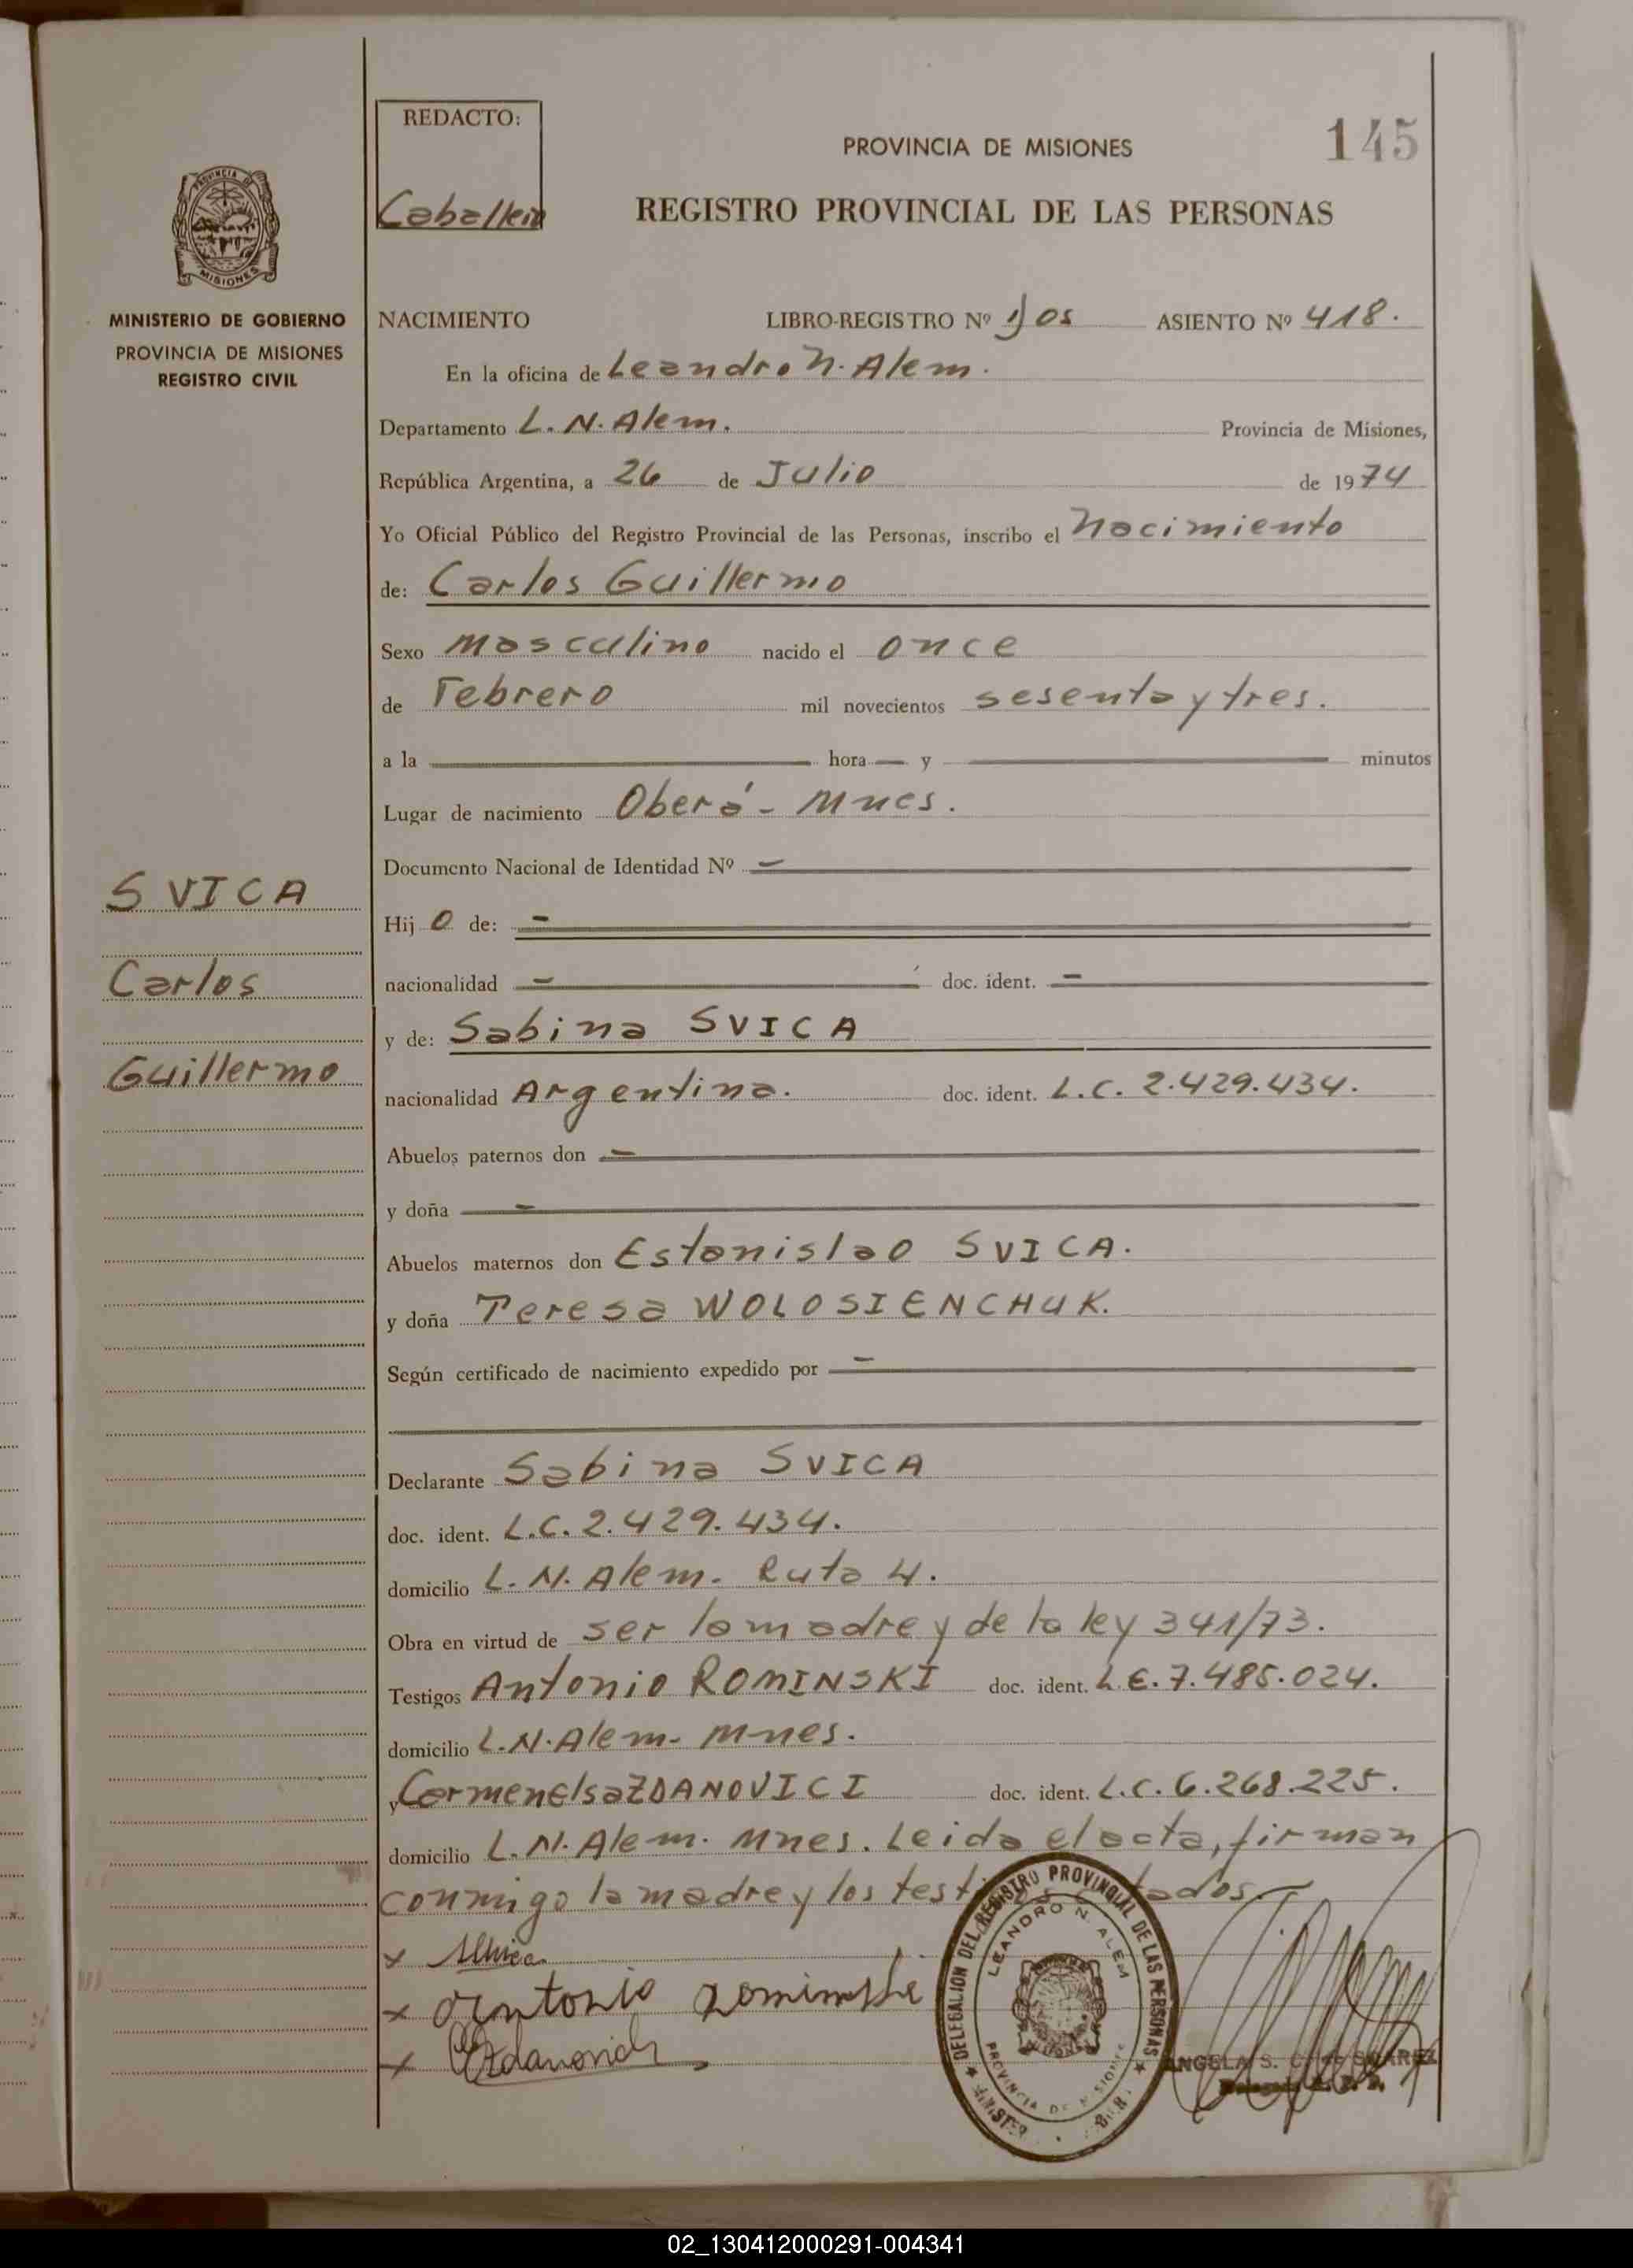 145
REDACTO:
PROVINCIA DE MISIONES
REGISTRO PROVINCIAL DE LAS PERSONAS
PROVINCIA DE
MISIONES
MINISTERIO DE GOBIERNO
PROVINCIA DE MISIONES
REGISTRO CIVIL
NACIMIENTO LIBRO-REGISTRO Nº ASIENTO Nº 418.
En la oficina de Leandro N. Alem.
Departamento L. N. Alem. Provincia de Misiones,
República Argentina, a 26 de Julio de 1974
Yo Oficial Público del Registro Provincial de las Personas, inscribo el Nacimiento
de: Carlos Guillermo
Sexo masculino nacido el once
de Febrero mil novecientos sesenta y tres.
a la — hora — y — minutos
Lugar de nacimiento Oberá - Mnes.
Documento Nacional de Identidad Nº —
SVICA
Hij o de: —
Carlos
nacionalidad — doc. ident. —
y de: Sabina SVICA
Guillermo
nacionalidad Argentina. doc. ident. L.C. 2.429.434.
Abuelos paternos don —
y doña —
Abuelos maternos don Estanislao SVICA.
y doña Teresa WOLOSIENCHUK.
Según certificado de nacimiento expedido por —
Declarante Sabina SVICA
doc. ident. L.C. 2.429.434.
domicilio L. N. Alem. Ruta 4.
Obra en virtud de ser la madre y de la ley 341/73.
Testigos Antonio ROMINSKI doc. ident. L.E. 7.485.024.
domicilio L.N. Alem - Mnes.
y Carmen Elsa ZDANOVICI doc. ident. L.C. 6.268.225.
domicilio L. N. Alem. Mnes. Leida el acta, firman
conmigo la madre y los testigos citados.
x
x Antonio
x
DELEGACION DEL REGISTRO PROVINCIAL DE LAS PERSONAS
LEANDRO N. ALEM
PROVINCIA DE MISIONES
ANGELA S. SUAREZ
02_130412000291-004341